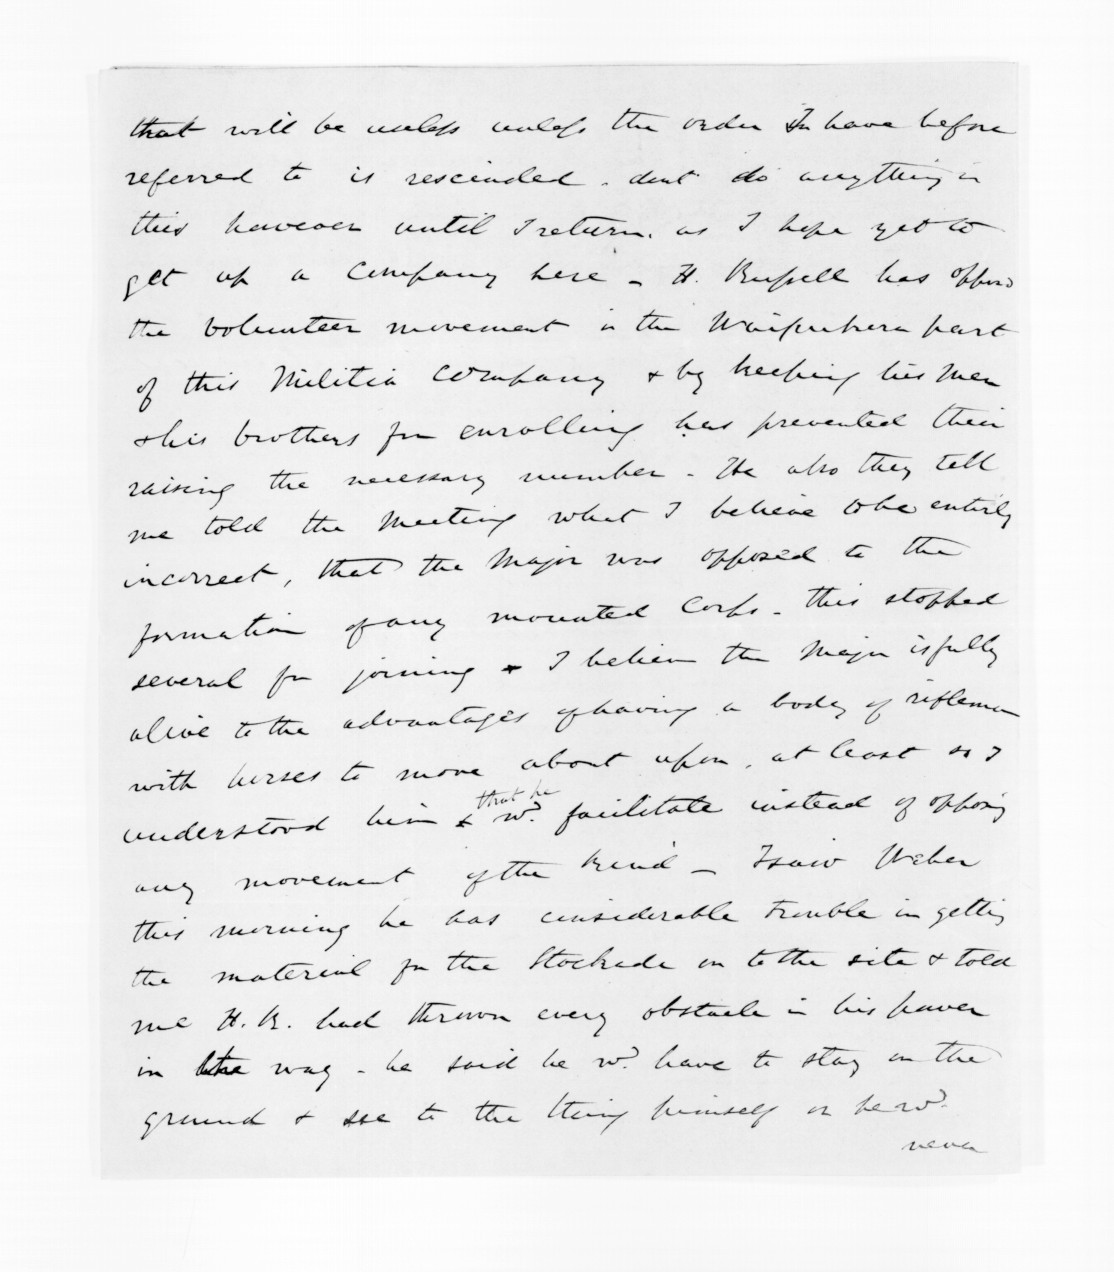 that will be useless unless the order I have before
referred to is rescinded. dont do anything in
this however until I return. as I hope yet to
get up a Company here - H. Russell has opposed
the Volunteer movement in the Waipukura part
of this Militia Company & by keeping his men
& his brothers fm enrolling has prevented their
raising the necessary number - He also they tell
me told the Meeting what I believe to be entirely
incorrect, that the Major was opposed to the
formation of any mounted Corps - this stopped
several fm joining & I believe the Major is fully
alive to the advantages of having a body of riflemen
with horses to move about upon, at least so I
understood him & that he wd. facilitate instead of opposing
any movement of the kind - I saw Weber
this morning he has considerable trouble in getting
the material for the Stockade on to the site & told
me H.R. had thrown every obstacle in his power
in the way - he said he wd. have to stay on the
ground & see to the thing himself or he wd.
never